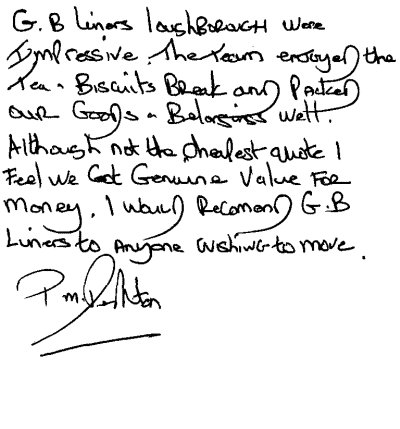 G.B Liners LoughBOROUGH were
Impressive. The Team enjoyed the
Tea & Biscuits Break and Packed
our Goods & Belongings well.
Although not the cheapest quote I
Feel we Got Genuine Value For
money. I would Recomend G.B
Liners to Anyone wishing to move.
P.M.